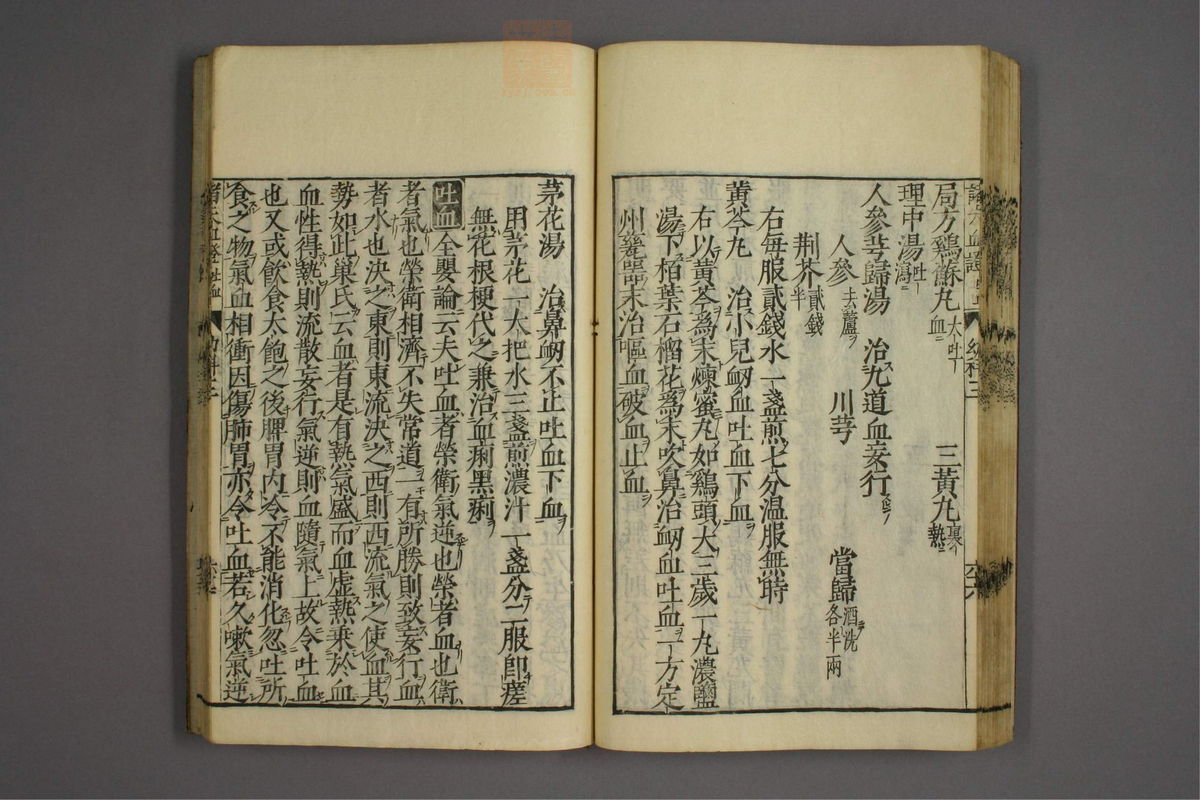 局方雞酥丸 大吐血 三黃丸 裏熱
理中湯 吐瀉
人參芎歸湯 治九道血妄行
人參 去蘆 川芎 當歸 酒洗各半兩
荆芥 貳錢半
右每服貳錢水一盞煎七分温服無時
黃芩丸 治小兒衂血吐血下血
右以黃芩爲末煉蜜丸如鷄頭大三歲一丸濃鹽
湯下栢葉石榴花爲末吹鼻治衂血吐血一方定
州甆器末治嘔血破血止血
茅花湯 治鼻衂不止吐血下血
用茅花一大把水三盞煎濃汁一盞分二服即瘥
無花根梗代之兼治血痢黑痢
吐血 全嬰論云夫吐血者榮衛氣逆也榮者血也衛
者氣也榮衛相濟不失常道一有所勝則致妄行血
者水也決之東則東流決之西則西流氣之使血其
勢如此巢氏云血者是有熱氣盛而血虚熱乗於血
血性得熱則流散妄行氣逆則血隨氣上故令吐血
也又或飲食太飽之後脾胃内冷不能消化忽吐所
食之物氣血相衝因傷肺胃亦令吐血若久嗽氣逆